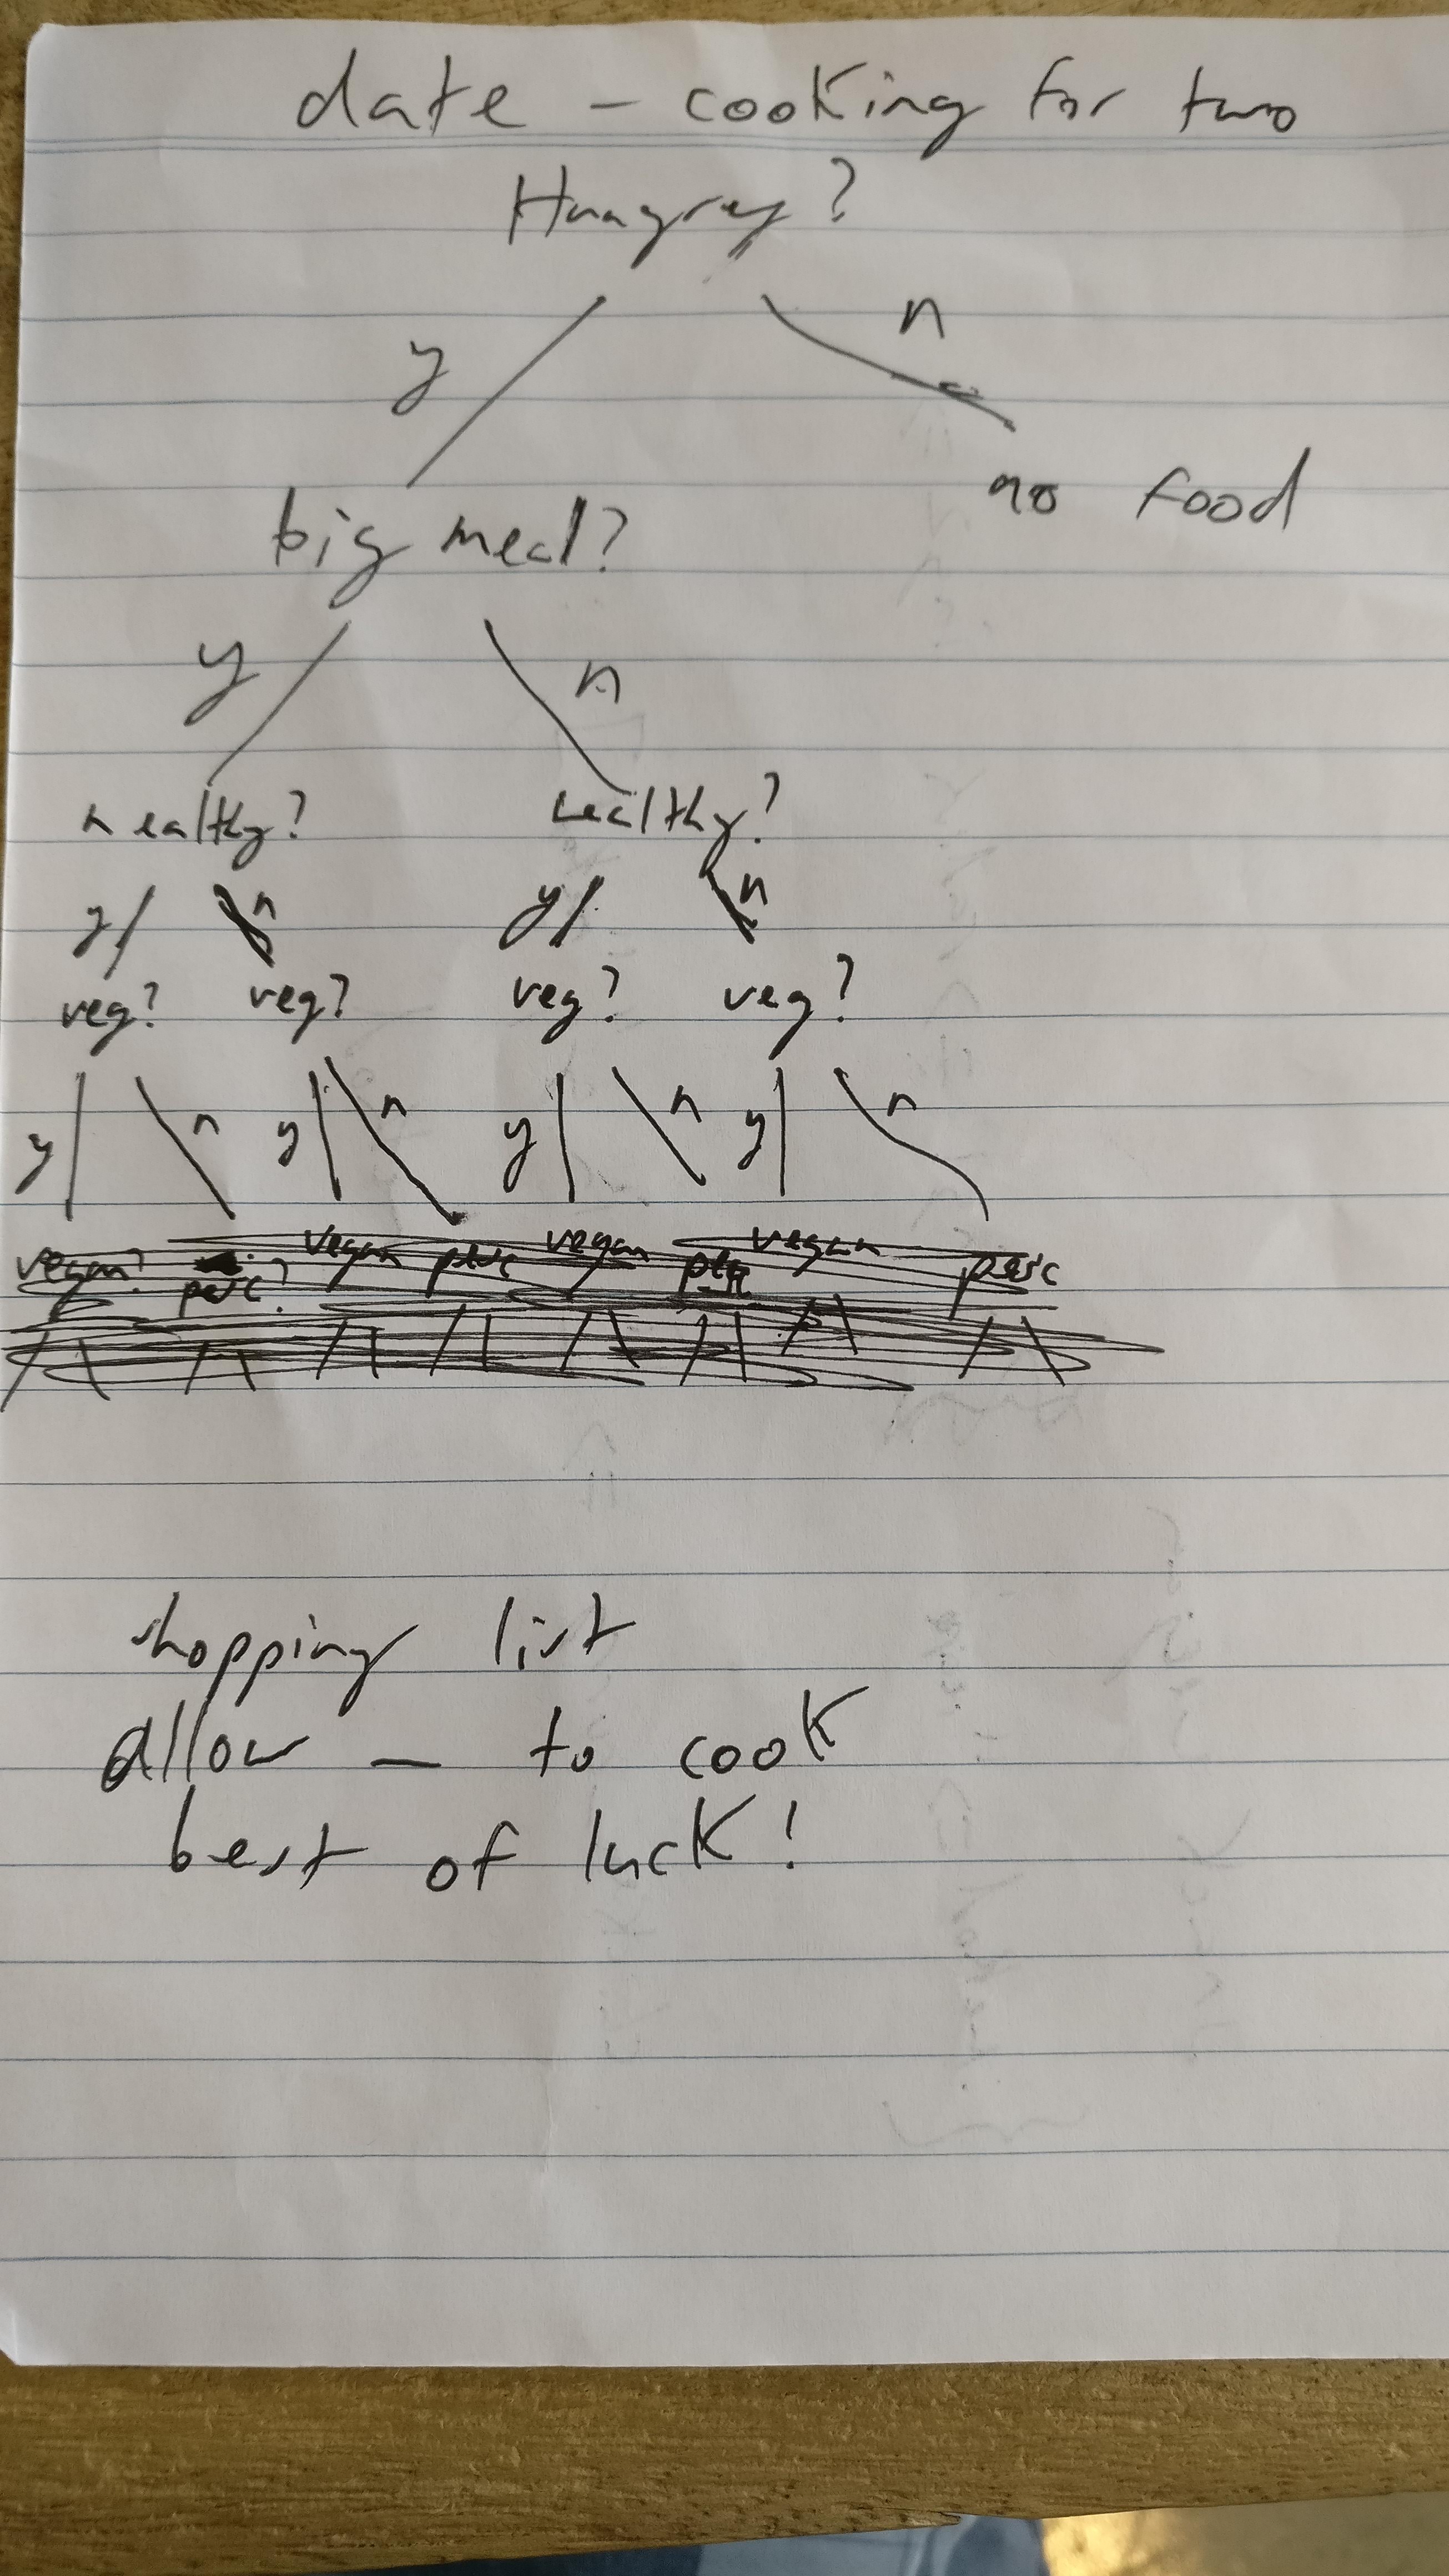 date - cooking for two
Hungrey?
y n
big meal? no food
y n
healthy? healthy?
y n y n
veg? veg? veg? veg?
y n y n y n y n
vegan? pesc? vegan pesc vegan vegan pesc
shopping list
allow - to cook
best of luck!